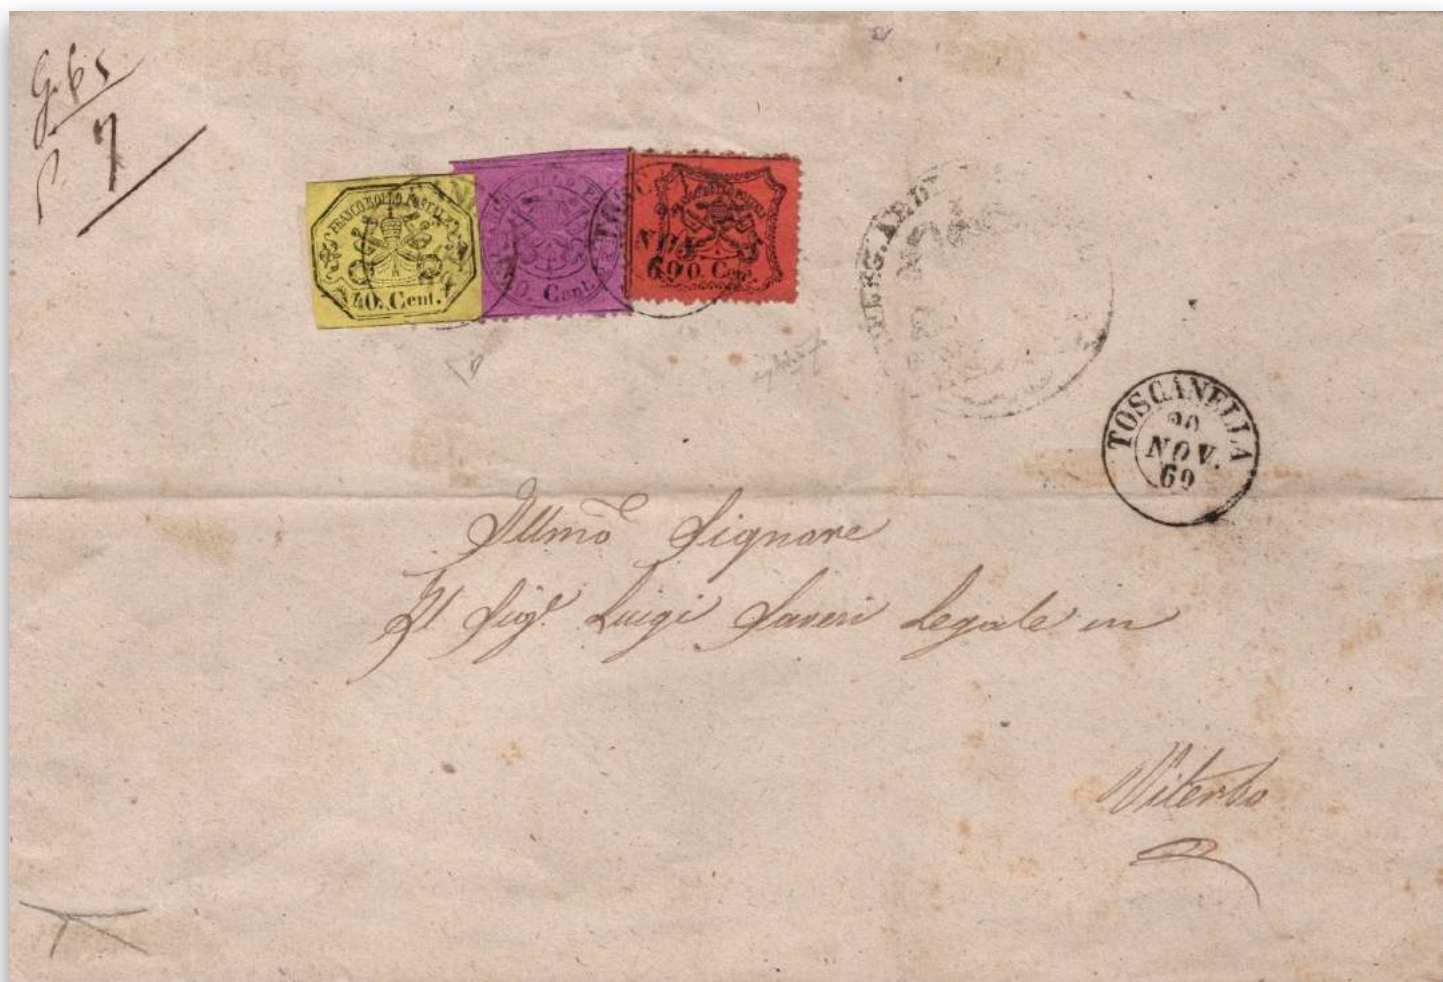 G. 65
P. 7
FRANCO BOLLO POSTALE
40. Cent.
Cent.
NOV
69
Cent.
TOSCANELLA
20
NOV.
69
Illmo Signore
Il Sigr. Luigi Saveri Legale in
Viterbo